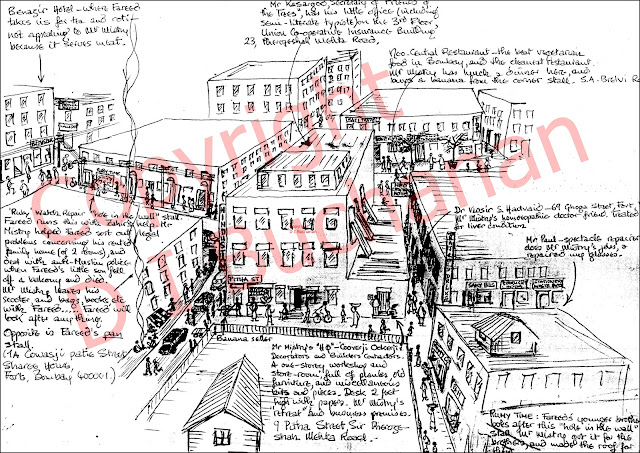 Benazir Hotel - where Fareed
takes us for tea and
not appealing to Mr Mistry
because it serves meat.
Mr Kasargod, Secretary of 'Friends of
the Trees', has his little office (including
semi-literate typist) on the 3rd Floor,
Union Co-operative Insurance Building
23, Pherozeshah Mehta Road.
Neo-Central Restaurant - the best vegetarian
food in Bombay, and the cleanest restaurant.
Mr Mistry has lunch & dinner here, and
buys a banana from the corner stall. S.A. Brelvi Rd
Ruby Watch Repair 'hole in the wall' stall
Fareed runs this with Zahir's help. Mr
Mistry helped Fareed sort out legal
problems concerning his rented
family home (of 2 rooms), and
deal with anti-Muslim police
when Fareed's little son fell
off a balcony and died.
Mr Mistry leaves his
scooter and bags, books etc
with Fareed.... Fareed will
look after anything.
Opposite is Fareed's pan
stall.
17A Cowasji Patel Street
Fort, Bombay 400001.
Dr Vazir S. 69 Ghoga Street, Fort,
Mr Mistry's homeopathic doctor friend, treated
for liver condition
Mr Paul - spectacle repairer
does Mr Mistry's glasses, &
repaired my glasses.
PITHA ST
Banana seller
Mr Mistry's "HQ" - Cooverji Odhavji
Decorators and Builders Contractors.
A one-storey workshop and
store-room, full of planks, old
furniture, and miscellaneous
bits and pieces. Desk 2 feet
high with papers. Mr Mistry's
'retreat' and business premises.
9 Pitha Street, Sir Pheroze-
shah Mehta Road.
RUBY TIME: Fareed's younger brother
looks after this "hole in the wall"
stall. Mr Mistry got it for the
brothers, and made the roof for
Copyright
D Buchanan